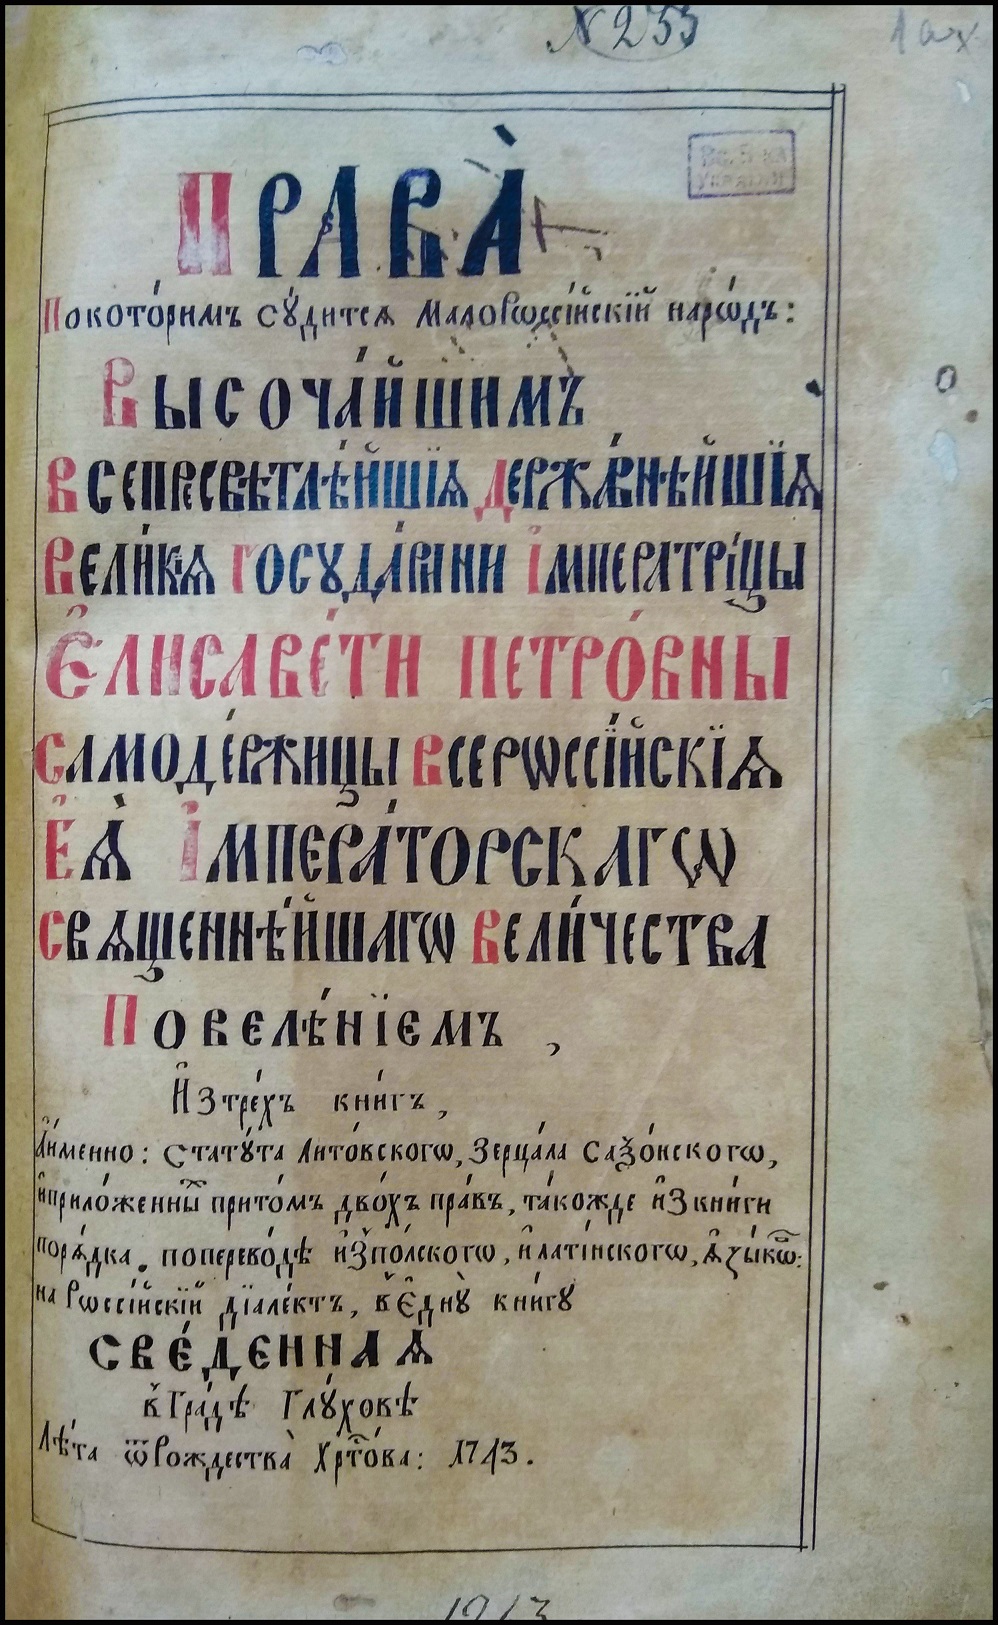 № 253
ПРАВА̀
Покото́римъ су́дится Малорѡссі́йскїй наро́дъ:
Высоча́йшимъ
Всепресвѣтлѣ́йшїѧ Держа́внѣйшїѧ
Вели́кїѧ Госуда́рини Імператрі́цы
Єлисаве́ти Петро́вны
Самоде́ржицы Всерѡссі́йскїѧ
Еѧ̀ Імпера́торскагѡ
Свѧщеннѣ́йшагѡ Вели́чества
Повелѣ́нїемъ,
Изтре́хъ кни́гъ,
Аи́менно: Стату́та Лито́вскогѡ, Зерца́ла Саѯо́нскогѡ,
иприло́женны̾х прито́мъ дво́хъ пра́въ, та́кожде изкни́ги
поря́дка. поперево́дѣ изпо́лскогѡ, илаті́нскогѡ, ѧзы́кѡ̾в:
на Рѡссі́йскїй дїале́ктъ, въ Єдну̀ кни́гу
СВЕ́ДЕННАѦ
въ Гра́дѣ Глу́ховѣ
Лѣ́та ѿ Рождества̀ Хрⷭ҇то́ва: 1743.